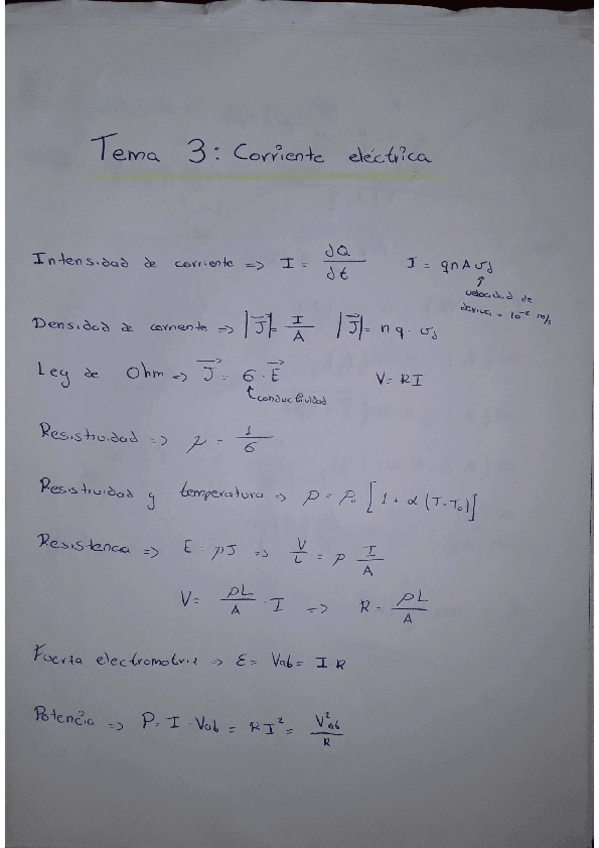 Tema 3: Corriente eléctrica
Intensidad de corriente => I = dQ/dt I = qnAvd
↑ velocidad de deriva = 10^-2 m/s
Densidad de corriente => |J| = I/A |J| = nq·vd
Ley de Ohm => J = σ·E V = RI
↑ conductividad
Resistividad => ρ = 1/σ
Resistividad y temperatura => ρ = ρ₀ [1 + α (T-T₀)]
Resistencia => E = ρJ => V/L = ρ I/A
V = ρL/A · I => R = ρL/A
Fuerza electromotriz => ε = Vab = I·R
Potencia => P = I·Vab = RI² = V²ab/R